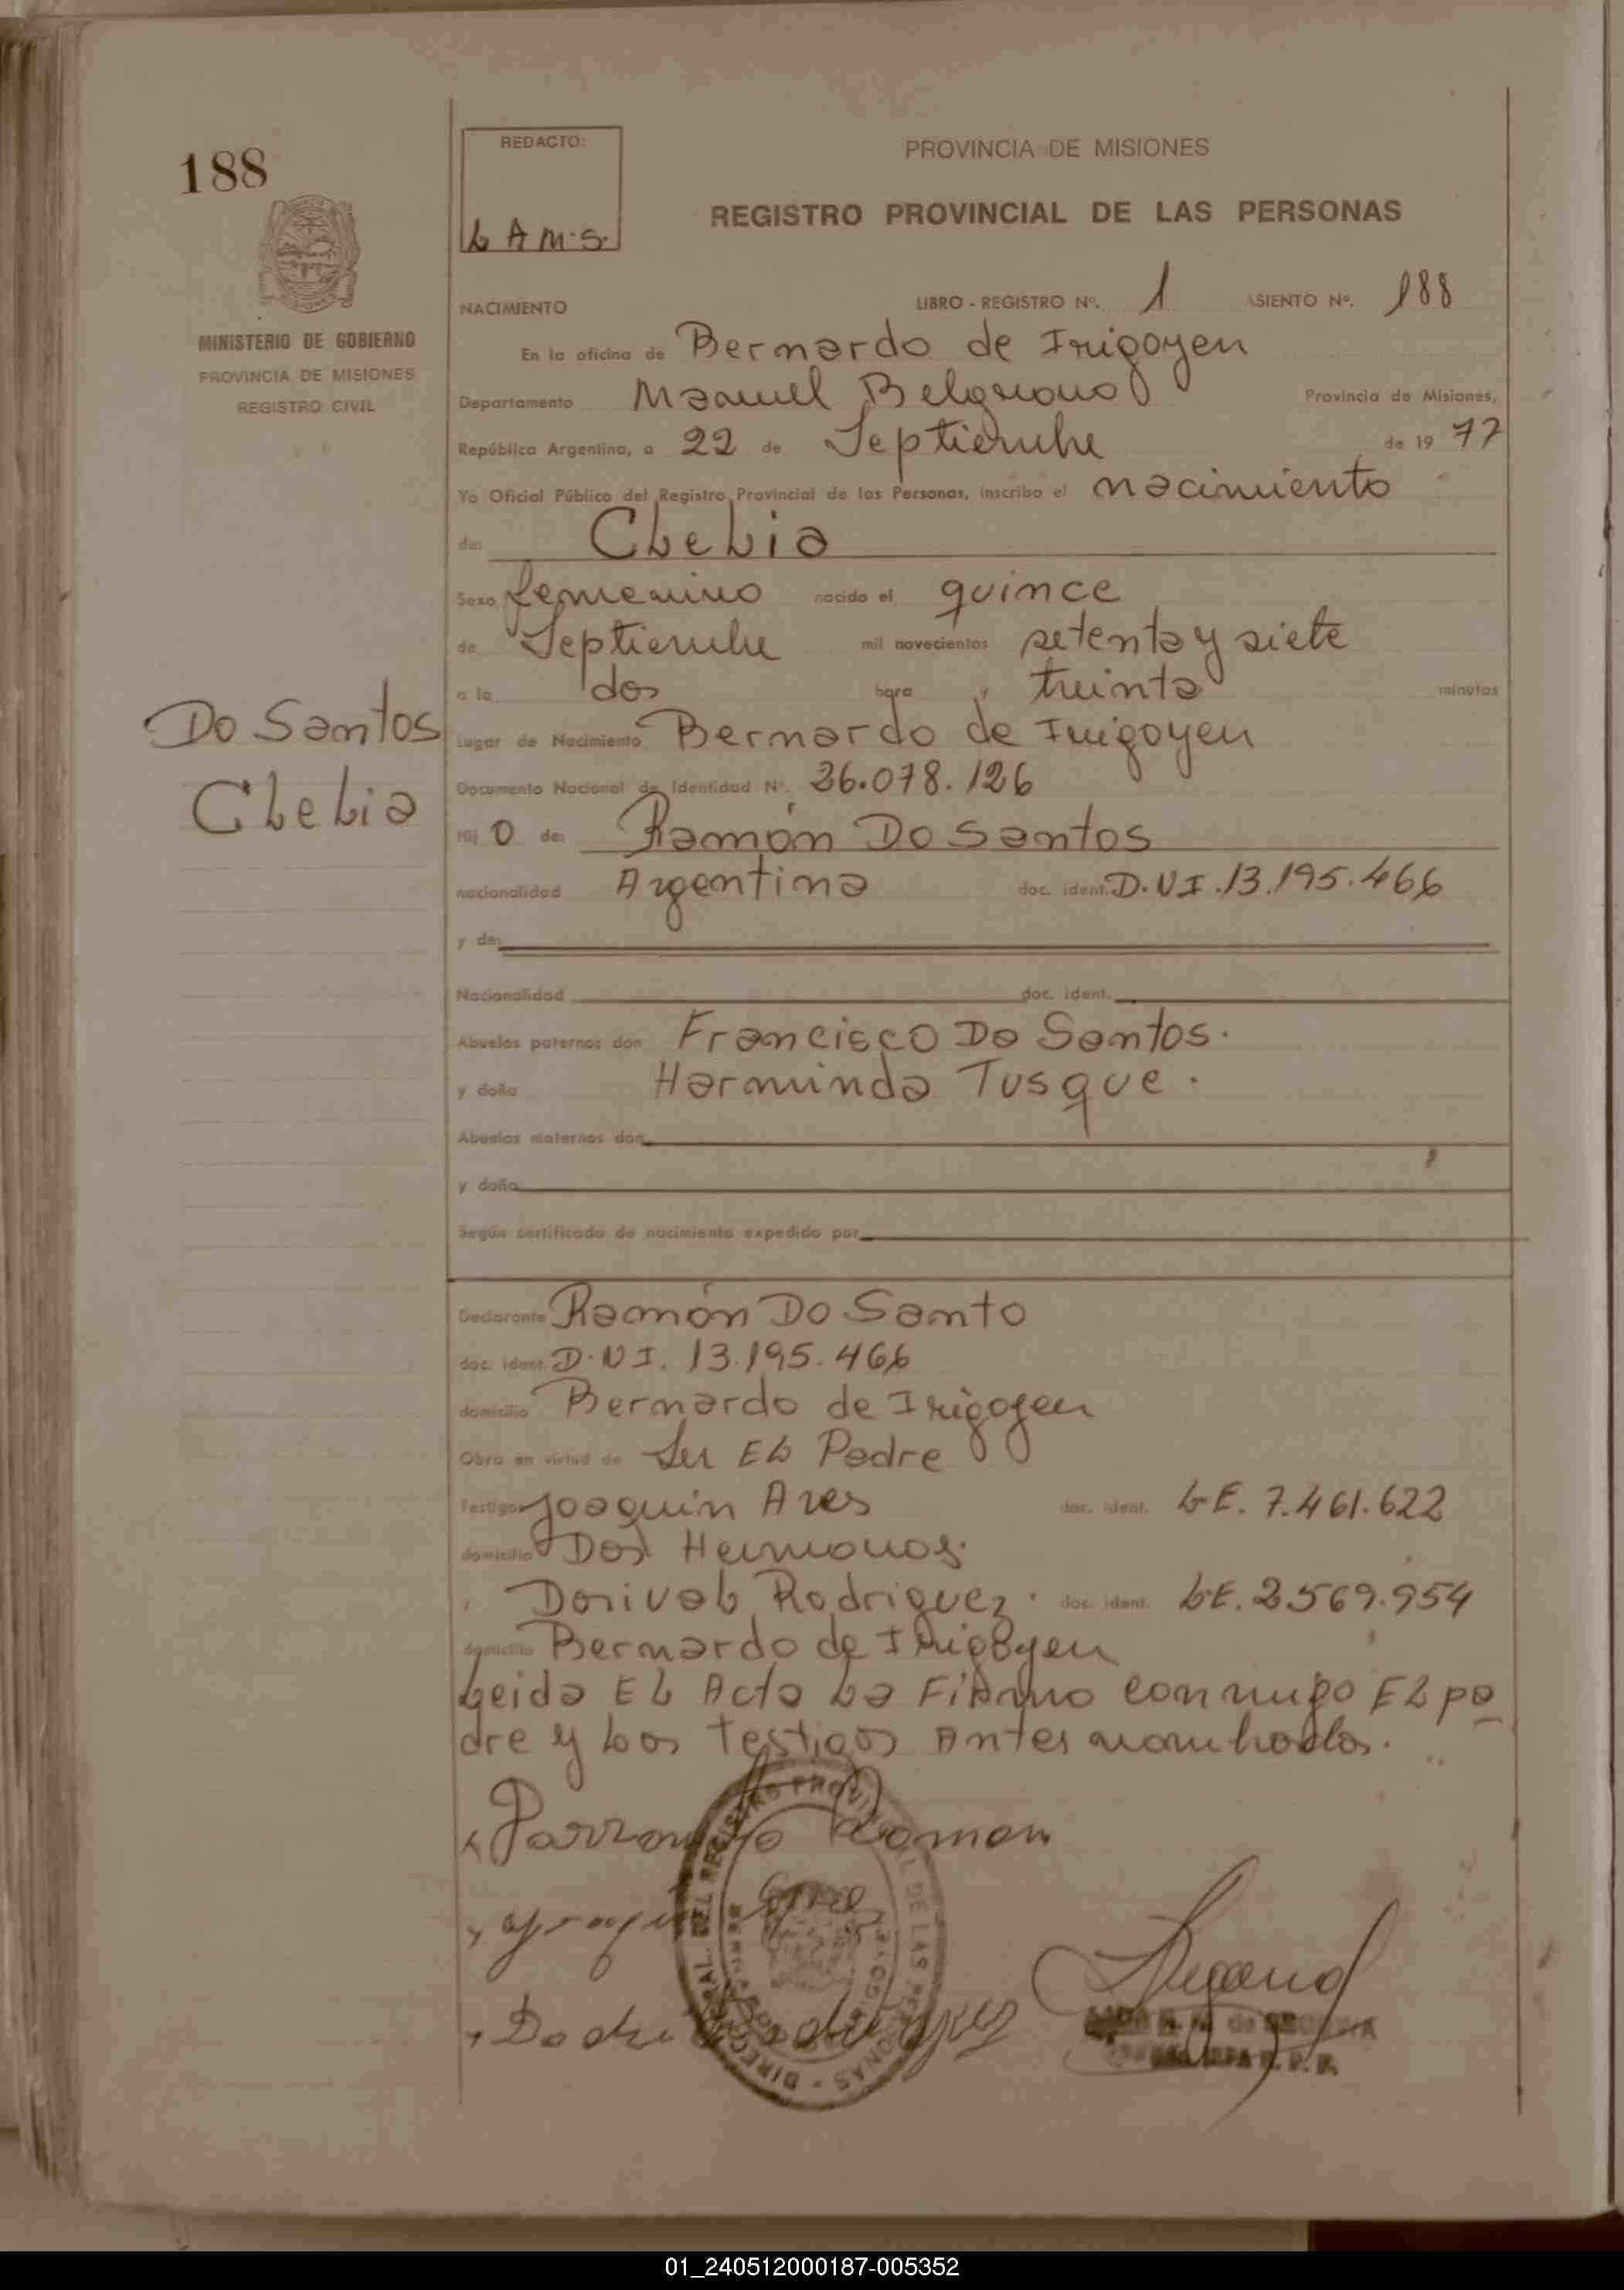 188
REDACTO:
L A M. S.
PROVINCIA DE MISIONES
REGISTRO PROVINCIAL DE LAS PERSONAS
NACIMIENTO
LIBRO - REGISTRO Nº. 1 ASIENTO Nº. 188
MINISTERIO DE GOBIERNO
PROVINCIA DE MISIONES
REGISTRO CIVIL
En la oficina de Bernardo de Irigoyen
Departamento Manuel Belgrano Provincia de Misiones,
República Argentina, a 22 de Septiembre de 19 77
Yo Oficial Público del Registro Provincial de las Personas, inscribo el nacimiento
de: Clelia
Sexo femenino nacido el quince
de Septiembre mil novecientos setenta y siete
a la dos hora y treinta minutos
Do Santos
Clelia
Lugar de Nacimiento Bernardo de Irigoyen
Documento Nacional de Identidad Nº. 26.078.126
Hij o de: Ramón Do Santos
nacionalidad Argentina doc. ident. D.N I.13.195.466
y de:
Nacionalidad doc. ident.
Abuelos paternos don Francisco Do Santos.
y doña Harminda Tusque.
Abuelos maternos don
y doña
Según certificado de nacimiento expedido por
Declarante Ramón Do Santo
doc. ident. D.N I. 13.195.466
domicilio Bernardo de Irigoyen
Obra en virtud de Ser El Padre
Testigos Joaquin Ares doc. ident. L.E. 7.461.622
domicilio Dos Hermanos.
y Dorival Rodriguez. doc. ident. L.E. 2.569.954
domicilio Bernardo de Irigoyen
Leida El Acta La Firmo conmigo El pa
dre y Los testigos Antes nombrados.
Ramon
DIRECCION GENERAL DEL REGISTRO PROVINCIAL DE LAS PERSONAS
01_240512000187-005352